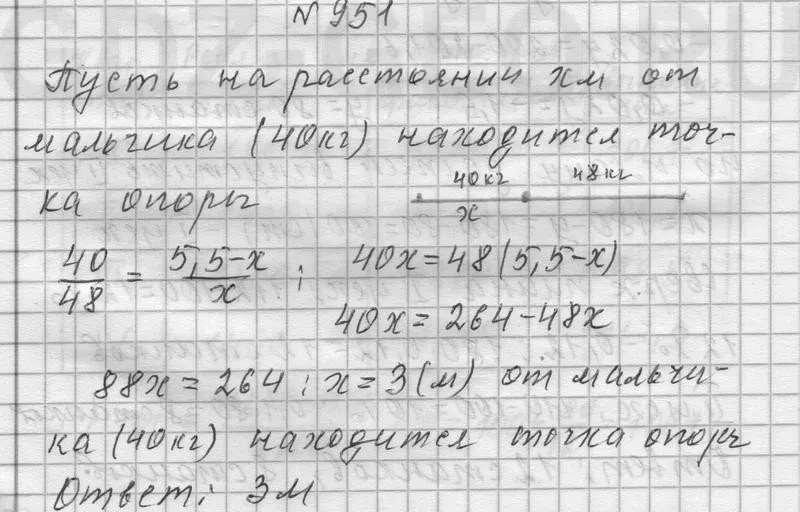 №951
Пусть на расстоянии xм от
мальчика (40кг) находится точ-
ка опоры
40кг 48кг
x
40/48 = 5,5-x/x ; 40x=48(5,5-x)
40x=264-48x
88x=264; x=3(м) от мальчи-
ка (40кг) находится точка опоры
Ответ: 3м